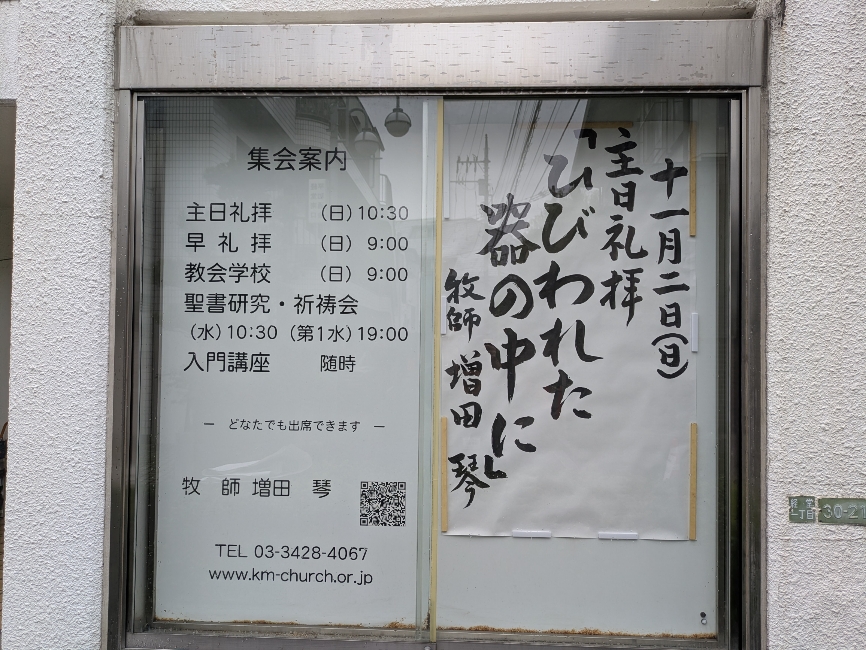 集会案内
主日礼拝 (日) 10:30
早礼拝 (日) 9:00
教会学校 (日) 9:00
聖書研究・祈祷会
(水) 10:30 (第1水) 19:00
入門講座 随時
― どなたでも出席できます ―
牧師 増田 琴
TEL 03-3428-4067
www.km-church.or.jp
十一月二日(日)
主日礼拝
「ひびわれた
器の中に」
牧師 増田 琴
経堂
一丁目
30-21